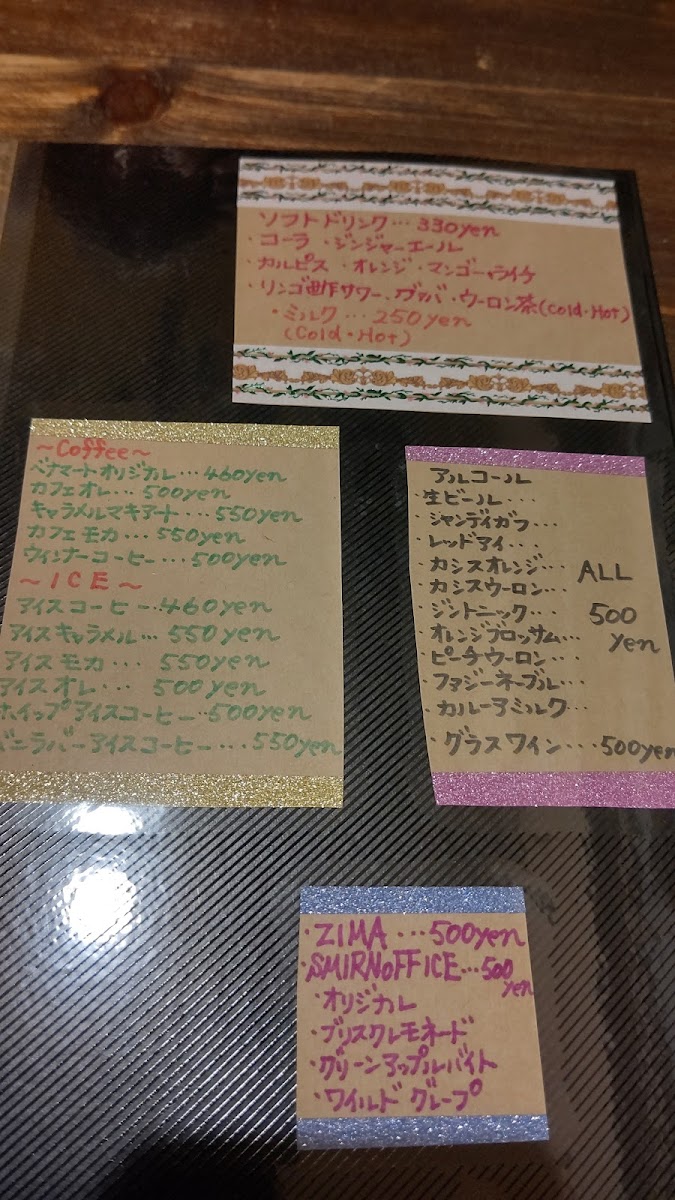 ソフトドリンク…330yen
・コーラ ・ジンジャーエール
・カルピス ・オレンジ・マンゴー・ライチ
・リンゴ酢サワー・グァバ・ウーロン茶(cold・Hot)
・ミルク…250yen
(Cold・Hot)
～Coffee～
ベナマートオリジナル…460yen
カフェオレ…500yen
キャラメルマキアート…550yen
カフェモカ…550yen
ウィンナーコーヒー…500yen
～ICE～
アイスコーヒー…460yen
アイスキャラメル…550yen
アイスモカ…550yen
アイスオレ…500yen
ホイップアイスコーヒー…500yen
バニラバーアイスコーヒー…550yen
アルコール
・生ビール…
・シャンディガフ…
・レッドアイ…
・カシスオレンジ…
・カシスウーロン…
・ジントニック…
・オレンジブロッサム…
・ピーチウーロン…
・ファジーネーブル…
・カルーアミルク…
ALL
500
yen
・グラスワイン…500yen
・ZIMA…500yen
・SMIRNoFF ICE…500
yen
・オリジナル
・ブリスクレモネード
・グリーンアップルバイト
・ワイルドグレープ